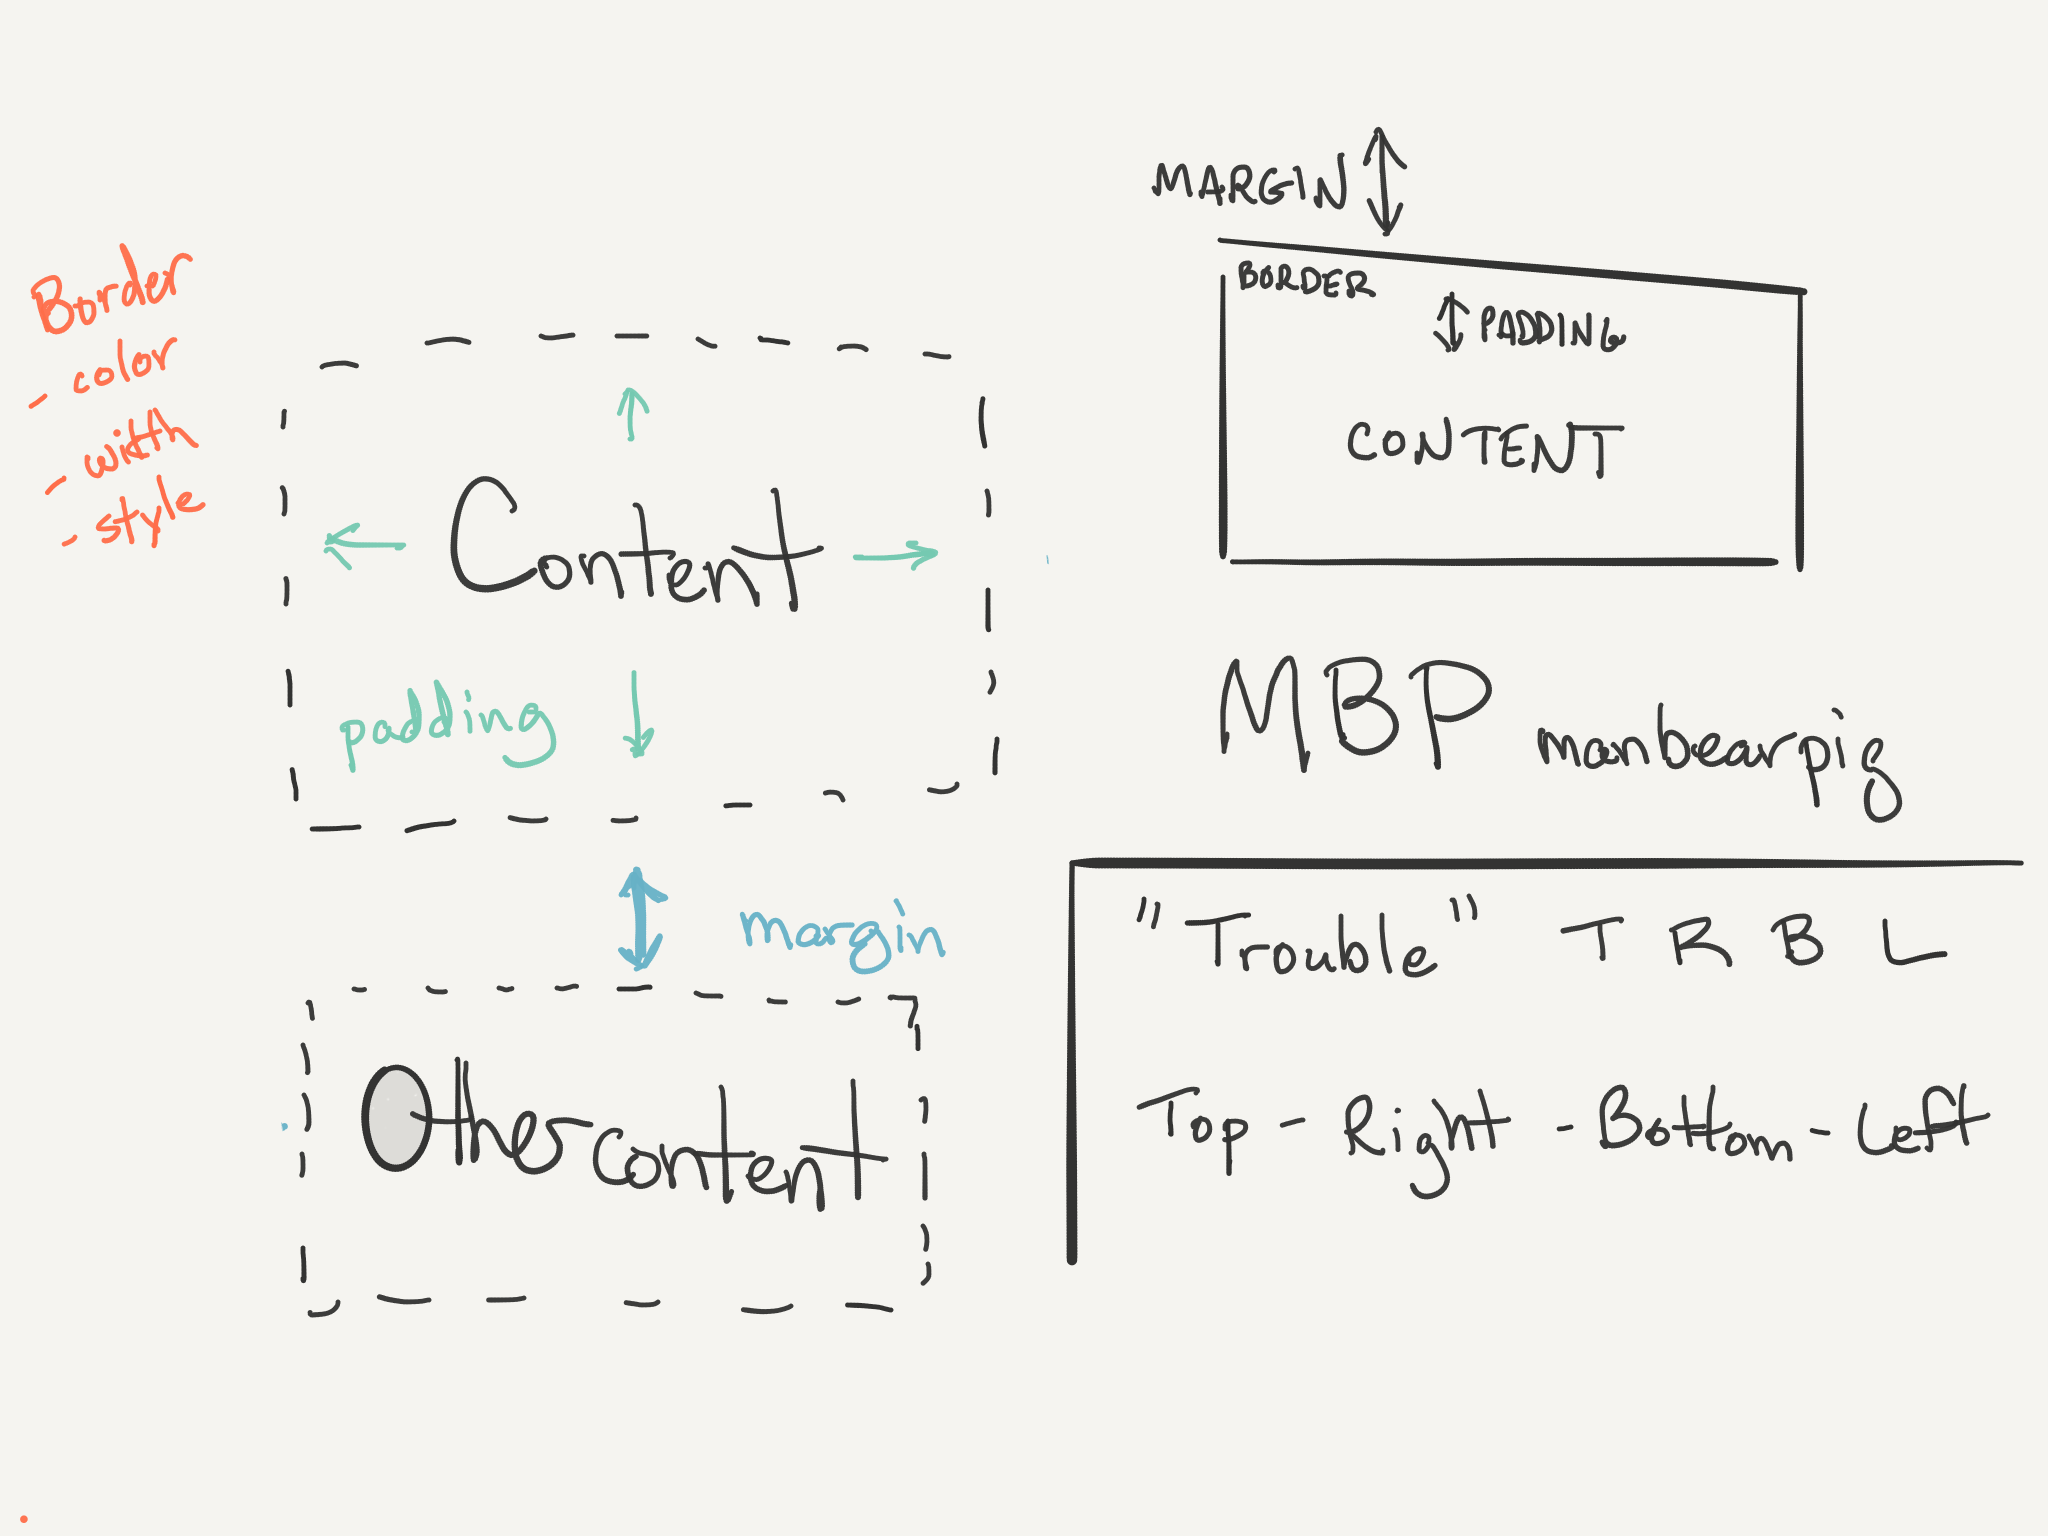 Border
- color
- width
- style
Content
padding
margin
Other content
MARGIN
BORDER
PADDING
CONTENT
MBP manbearpig
"Trouble" T R B L
Top - Right - Bottom - Left